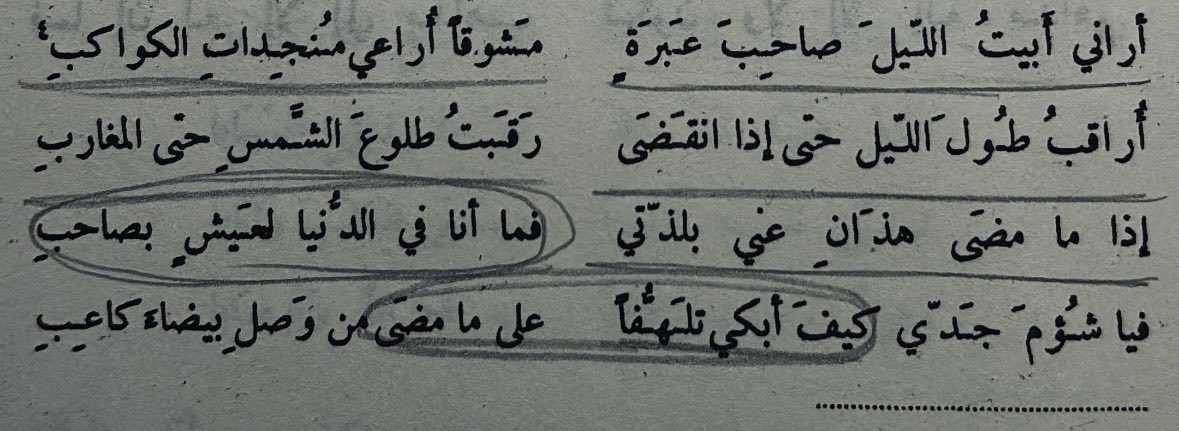 أراني أَبيتُ اللّيلَ صاحِبَ عَبرَةٍ مَشوقاً أُراعي مُنجِداتِ الكواكبِ؛
أُراقبُ طُولَ اللّيل حتّى إذا انقَضَى رَقَبتُ طلوعَ الشَّمسِ حتّى المغاربِ
إذا ما مضَى هذَانِ عني بلذّتي فما أنا في الدُّنيا لعَيشٍ بصاحبِ
فيا شُؤمَ جَدّي كيفَ أبكي تلَهفُّاً على ما مضَى من وَصلِ بيضاءَ كاعِبِ